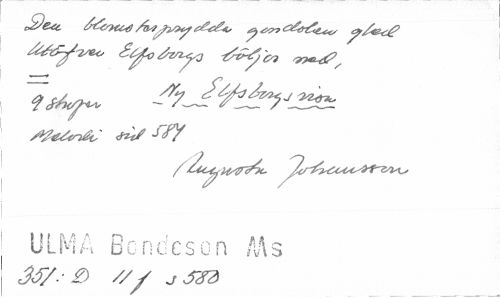 Den blomsterprydda gondolen gled
Utöfver Elfsborgs böljor ned,
=
9 strofer Ny Elfsborgsvisa
Melodi sid 584
Augusta Johansson
ULMA Bondeson Ms
351: D 11 f s 580